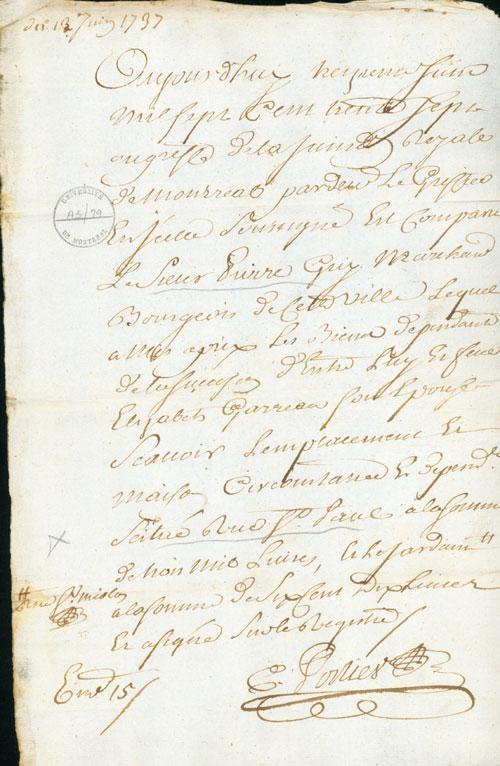 du 13 Juin 1737
Aujourdhuy treizieme Juin
mil sept cent trente sept
au greffe de la Juridon Royale
de Montreal pardevt Le Greffier
En jcelle Soussigné Est Comparu
Le Sieur Pierre Guy Marchand
Bourgeois de Cette Ville Lequel
a mis a prix Les Biens dependant
de la d'Entre Luy Et feue
Elizabeth Garreau son Epouse
Scavoir L'emplacement Et
maison Circonstance Et dependce
Scitué Rue St. Paul a la somme
de trois mil Livres, et le Jardin #
a la somme de six cent dix Livres
Et a signé Sur le Registre
# rue St Nicolas
UNIVERSITÉ
A5/79
DE MONTRÉAL
Emt 15 s
C. Porlier